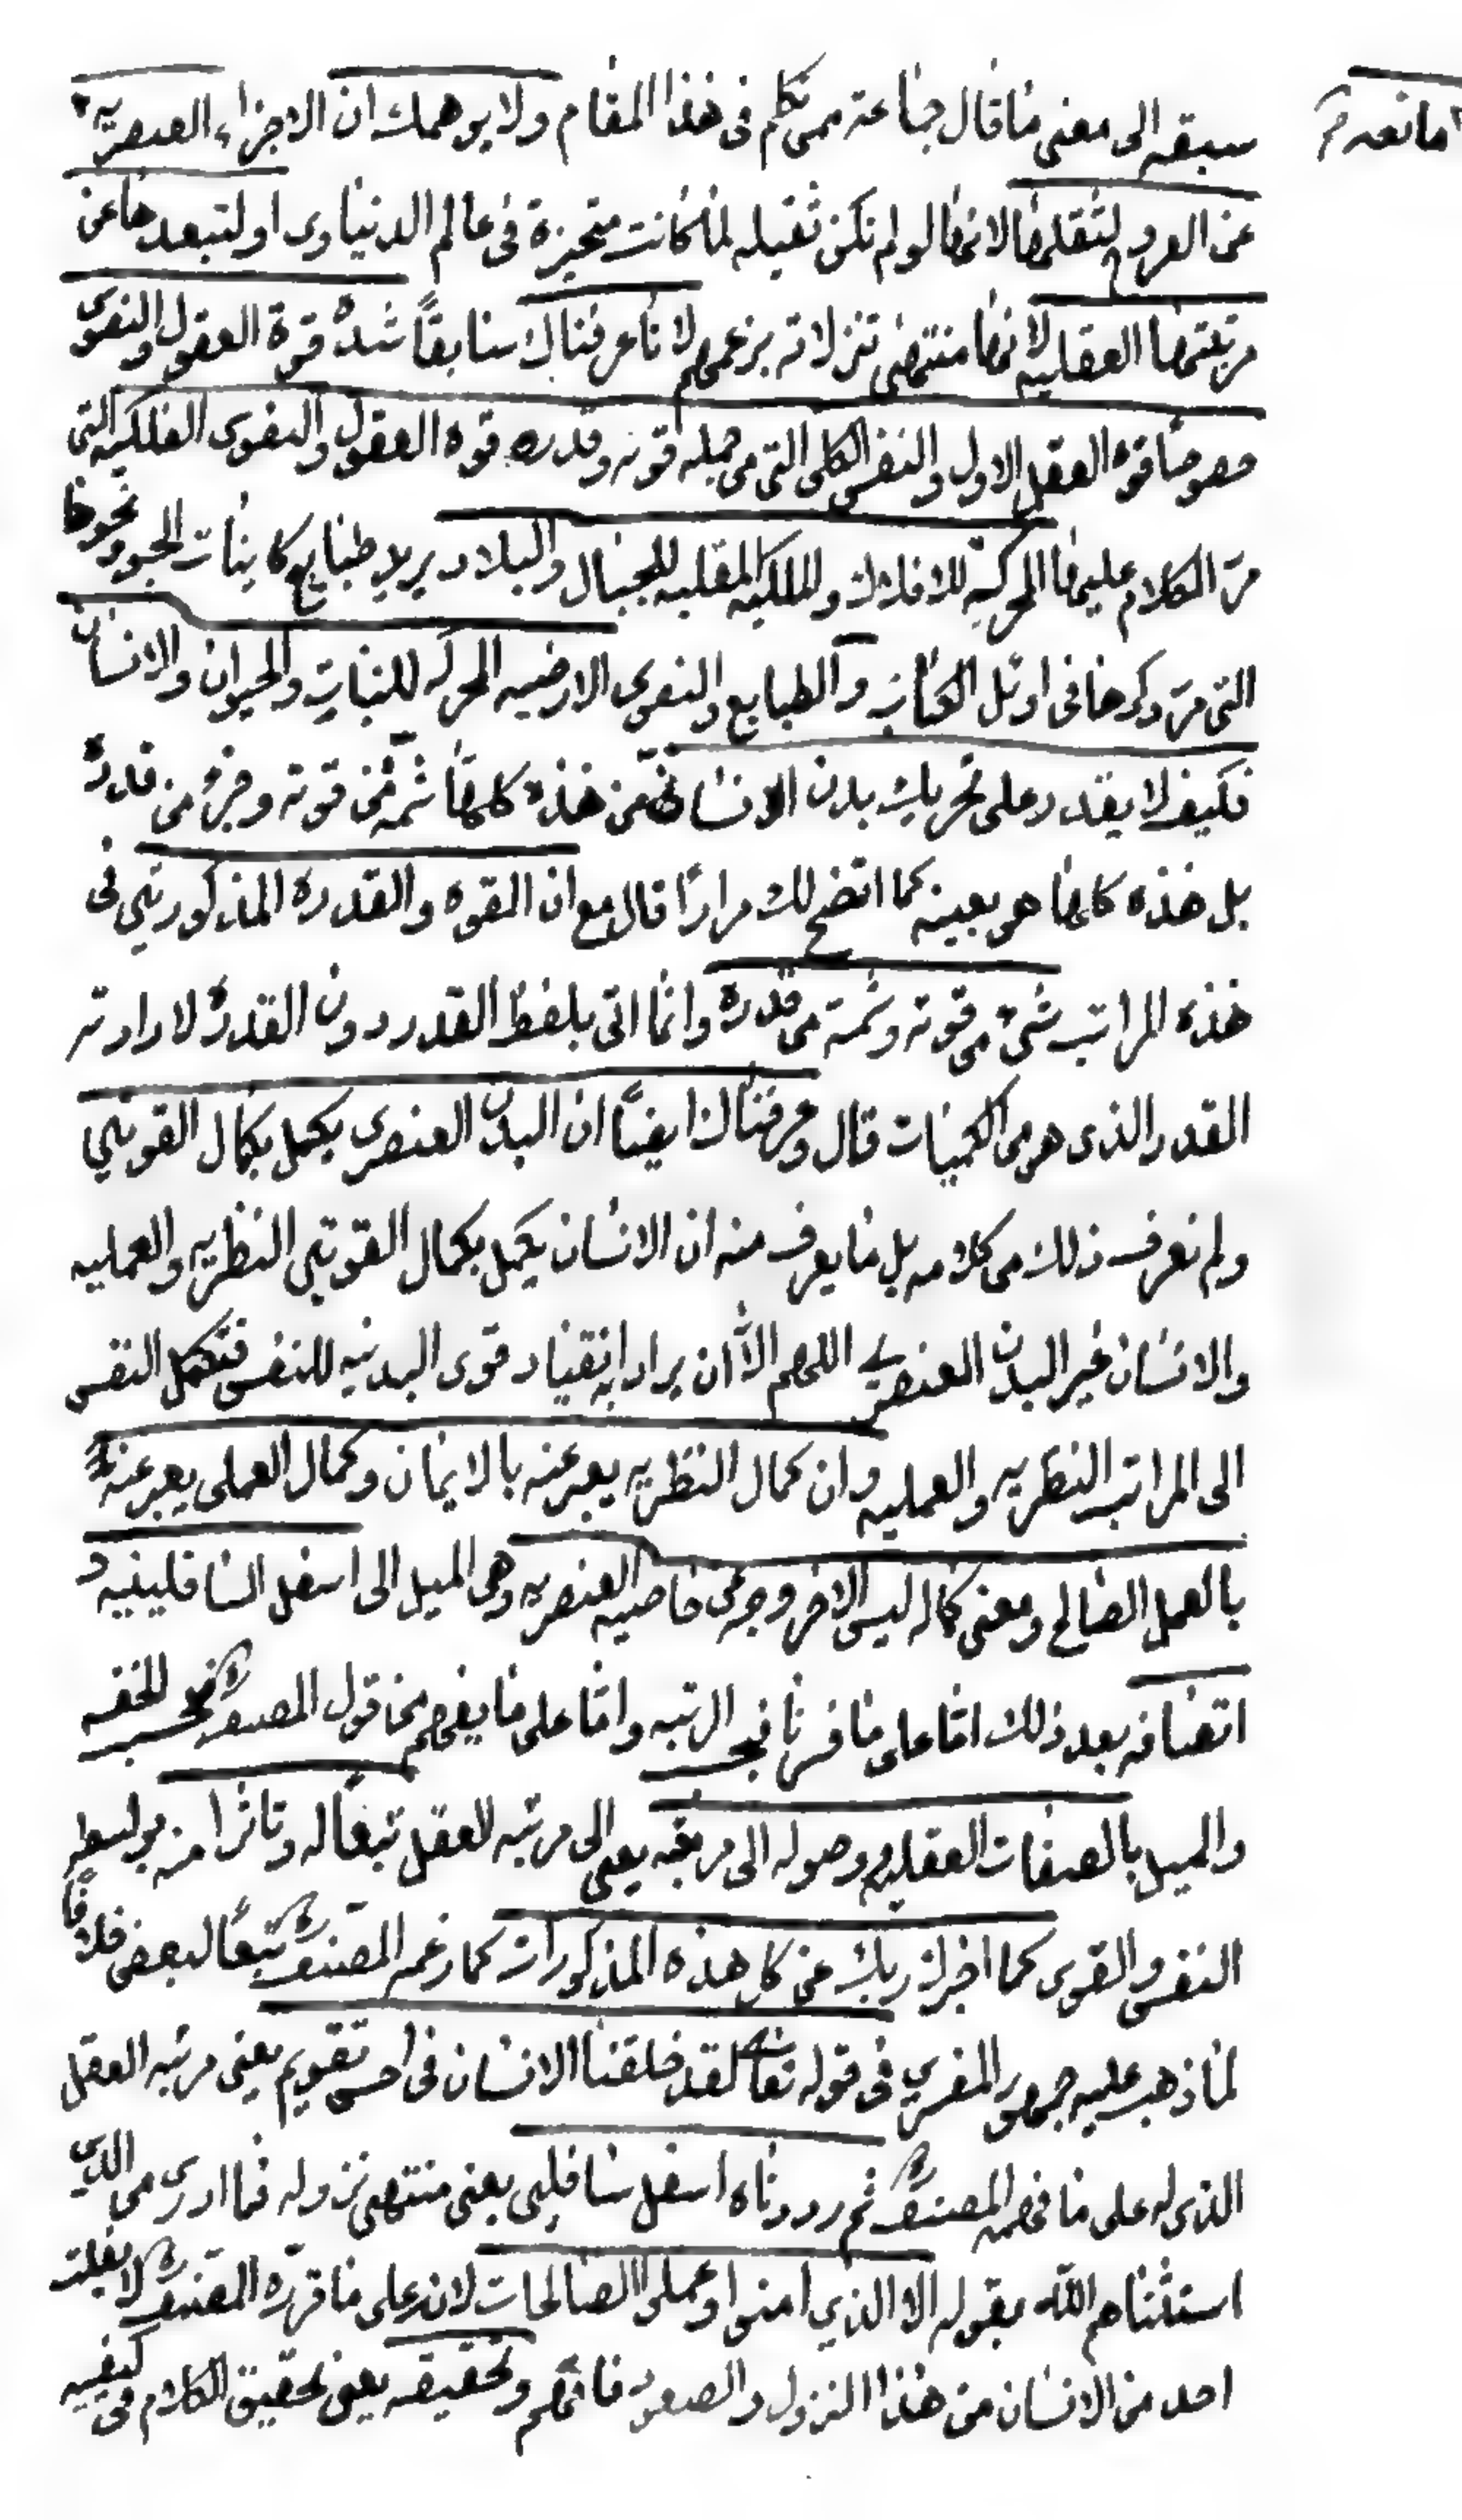 سبقه الى معنى ما قال جماعة ممن تكلم فى هذا المقام ولا يوهمك ان الاجزاء العنصريه
مانعه
عن العروج لثقلها لانها لو لم تكن ثقيله لما كانت متحيزة فى عالم الدنياوى او لتبعدها عن
مرتبتها العقليه لانها منتهى تنزلاته بزعمهم لانا عرفناك سابقاً شدة قوة العقول والنفوس
خصوصاً قوة العقل الاول والنفس الكلى التى من جمله قوته وقدره قوه العقول والنفوس الفلكيه التى
مرّ الكلام عليها المحركة للافلاك والملكيه المقلبه للجبال والبلاد يريد طبايع كاينات الجو ونحوها
التى مرّ ذكرها فى اوئل الكتاب والطبايع والنفوس الارضيه المحركه للنبات والحيوان والانسان
فكيف لا يقدر على تحريك بدن الانسان من هذه كلها شمّه من قوته وجزء من قدره
بل هذه كلها هو بعينه كما اتضح لك مراراً قال مع ان القوه والقدره المذكورتين فى
هذه المراتب شىء من قوته وشمة من قدره وانما اتى بلفظ القدر دون القدرة لارادته
القدر الذى هو من الكميات قال وعرفناك ايضاً ان البدن العنصرى يكمل بكمال القوتين
ولم نعرف ذلك من كلامه بل ما يعرف منه ان الانسان يكمل بكمال القوتين النظريه والعمليه
والانسان غير البدن العنصرى اللهم الّا ان يراد به انقياد قوى البدنيه للنفس فتكمل النفس
الى المراتب النظريه والعمليه وان كمال النظريه يعبر عنه بالايمان وكمال العملى يعبر عنه
بالعمل الصالح ومعنى كماله ليس الا خروجه عن خاصيه العنصريه وهى الميل الى اسفل السافلينيه و
اتصافه بعد ذلك امّا على ما فسرنا فبحسب الرتبه وامّا على ما يفهم من قول المصنف فبحسب الخفه
والميل بالصفات العقليه ووصوله الى مرتبته يعنى الى مرتبه العقل تبعاً له وتاثرا منه بواسطه
النفس والقوى كما اخبرك ربك عن كل هذه المذكورات كما زعمه المصنف تبعاً لبعض خلافاً
لما ذهب عليه جمهور المفسرين فى قوله تعالى لقد خلقنا الانسان فى احسن تقويم يعنى مرتبه العقل
الذى له على ما فهمه المصنف ثم رددناه اسفل سافلين يعنى منتهى نزوله فما ادرى من الذين
استثناهم الله بقوله الا الذين امنوا وعملوا الصالحات لانه على ما قرره المصنف لا يفلت
احد من الانسان من هذا النزول والصعود فافهم وتحقيقه يعنى تحقيق الكلام فى كيفيه